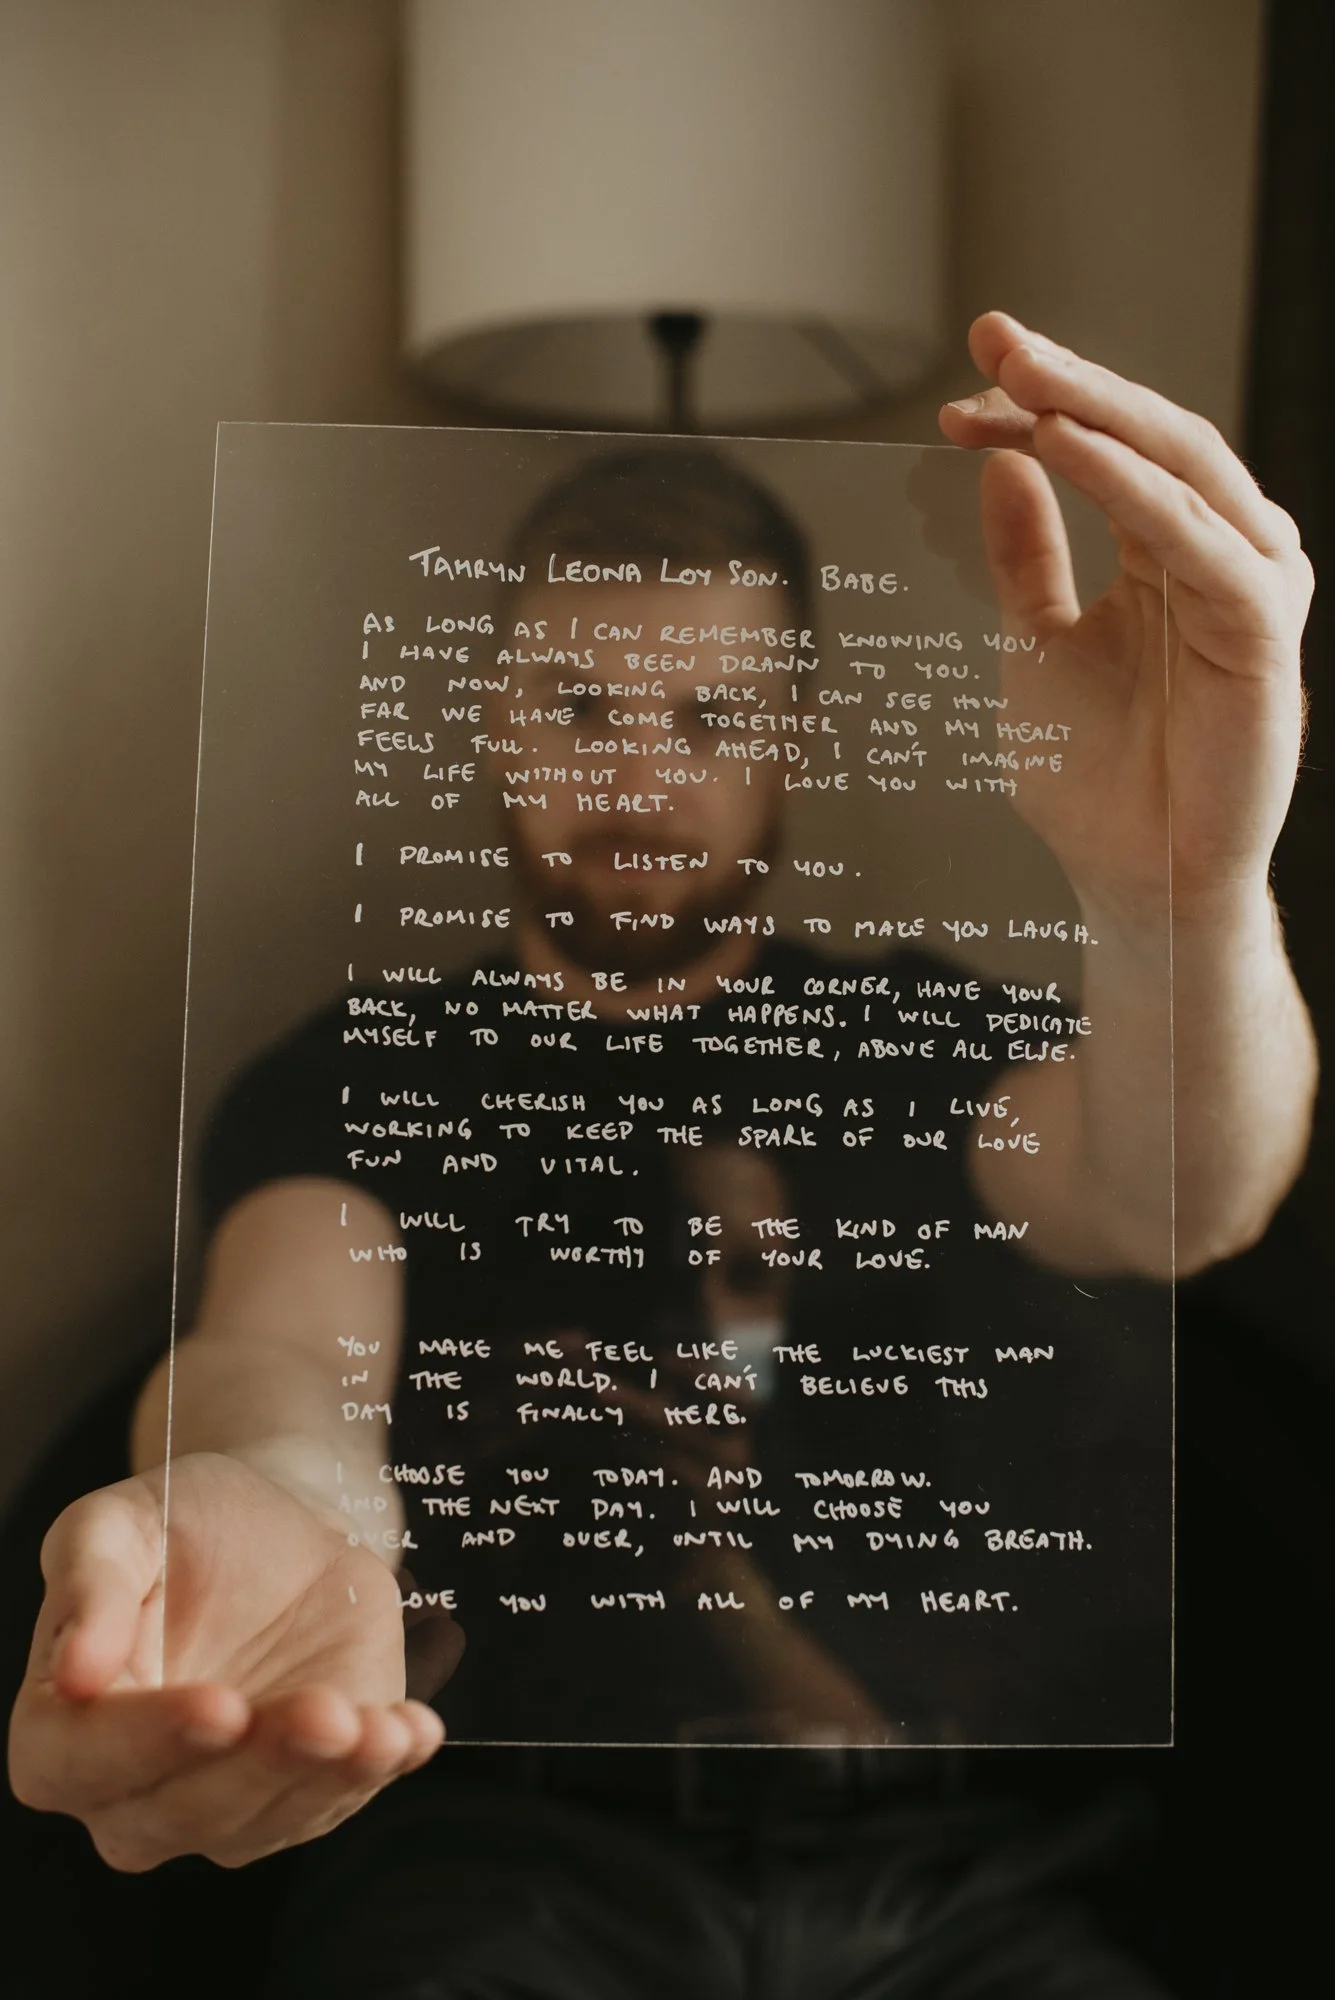 TAMRYN LEONA LOY SON. BABE.
AS LONG AS I CAN REMEMBER KNOWING YOU,
I HAVE ALWAYS BEEN DRAWN TO YOU.
AND NOW, LOOKING BACK, I CAN SEE HOW
FAR WE HAVE COME TOGETHER AND MY HEART
FEELS FULL. LOOKING AHEAD, I CAN'T IMAGINE
MY LIFE WITHOUT YOU. I LOVE YOU WITH
ALL OF MY HEART.
I PROMISE TO LISTEN TO YOU.
I PROMISE TO FIND WAYS TO MAKE YOU LAUGH.
I WILL ALWAYS BE IN YOUR CORNER, HAVE YOUR
BACK, NO MATTER WHAT HAPPENS. I WILL DEDICATE
MYSELF TO OUR LIFE TOGETHER, ABOVE ALL ELSE.
I WILL CHERISH YOU AS LONG AS I LIVE,
WORKING TO KEEP THE SPARK OF OUR LOVE
FUN AND VITAL.
I WILL TRY TO BE THE KIND OF MAN
WHO IS WORTHY OF YOUR LOVE.
YOU MAKE ME FEEL LIKE THE LUCKIEST MAN
IN THE WORLD. I CAN'T BELIEVE THIS
DAY IS FINALLY HERE.
I CHOOSE YOU TODAY. AND TOMORROW.
AND THE NEXT DAY. I WILL CHOOSE YOU
OVER AND OVER, UNTIL MY DYING BREATH.
I LOVE YOU WITH ALL OF MY HEART.